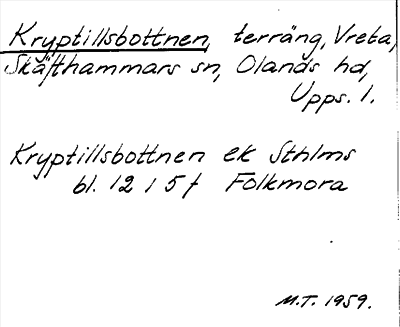 Kryptillsbottnen, terräng, Vreta,
Skäfthammars sn, Olands hd,
Upps. l.
Kryptillsbottnen ek Sthlms
bl. 12 I 5 f Folkmora
M.T. 1959.